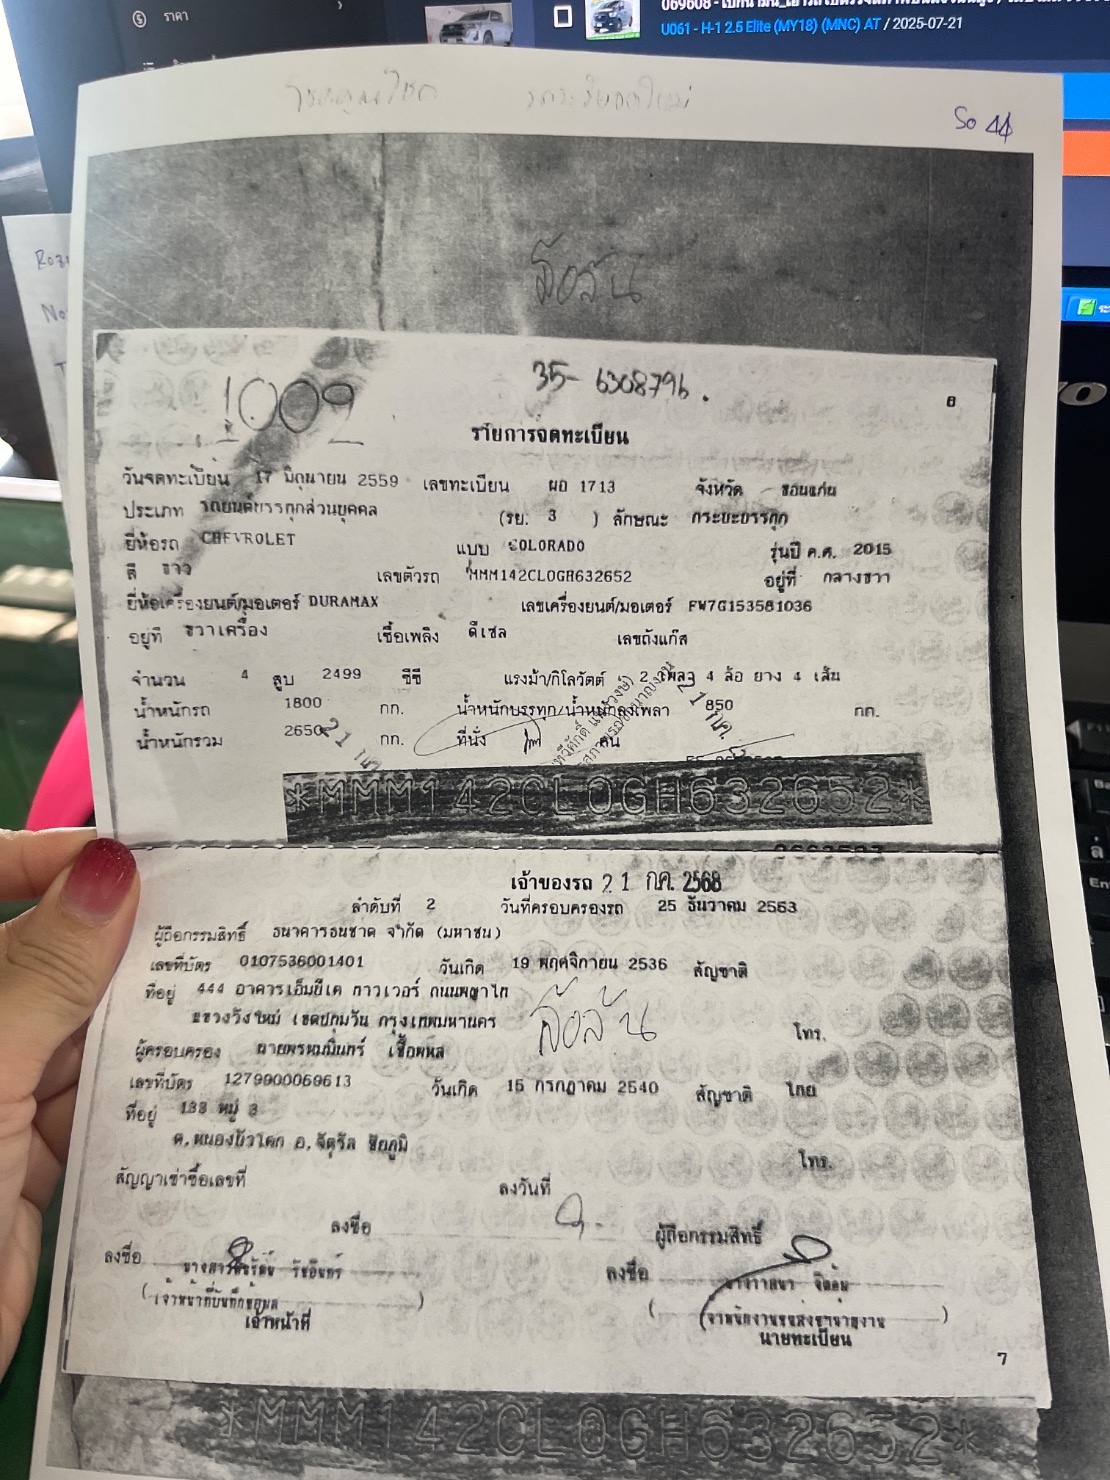 ราคา
U061 - H-1 2.5 Elite (MY18) (MNC) AT / 2025-07-21
So 44
ล้อลั่น
1009
35-6308796.
6
รายการจดทะเบียน
วันจดทะเบียน 17 มิถุนายน 2559 เลขทะเบียน ผอ 1713 จังหวัด ขอนแก่น
ประเภท รถยนต์บรรทุกส่วนบุคคล (รย. 3 ) ลักษณะ กระบะบรรทุก
ยี่ห้อรถ CHEVROLET แบบ COLORADO รุ่นปี ค.ศ. 2015
สี ขาว เลขตัวรถ MMM142CL0GH632652 อยู่ที่ กลางขวา
ยี่ห้อเครื่องยนต์/มอเตอร์ DURAMAX เลขเครื่องยนต์/มอเตอร์ FW7G153581036
อยู่ที่ ขวาเครื่อง เชื้อเพลิง ดีเซล เลขถังแก๊ส
จำนวน 4 สูบ 2499 ซีซี แรงม้า/กิโลวัตต์ 2 เพลา 4 ล้อ ยาง 4 เส้น
น้ำหนักรถ 1800 กก. น้ำหนักบรรทุก/น้ำหนักลงเพลา 850 กก.
น้ำหนักรวม 2650 กก. ที่นั่ง คน
*MMM142CL0GH632652*
เจ้าของรถ 21 กค. 2568
ลำดับที่ 2 วันที่ครอบครองรถ 25 ธันวาคม 2563
ผู้ถือกรรมสิทธิ์ ธนาคารธนชาต จำกัด (มหาชน)
เลขที่บัตร 0107536001401 วันเกิด 19 พฤศจิกายน 2536 สัญชาติ
ที่อยู่ 444 อาคารเอ็มบีเค ทาวเวอร์ ถนนพญาไท
แขวงวังใหม่ เขตปทุมวัน กรุงเทพมหานคร โทร.
ล้อลั่น
ผู้ครอบครอง นายพรหมมินทร์ เชื้อพหล
เลขที่บัตร 1279900069613 วันเกิด 15 กรกฎาคม 2540 สัญชาติ ไทย
ที่อยู่ 133 หมู่ 3
ต.หนองบัวโคก อ.จัตุรัส ชัยภูมิ โทร.
สัญญาเช่าซื้อเลขที่ ลงวันที่
ลงชื่อ ผู้ถือกรรมสิทธิ์
ลงชื่อ ลงชื่อ
(เจ้าหน้าที่บันทึกข้อมูล ) ( เจ้าพนักงานขนส่งชำนาญงาน )
เจ้าหน้าที่ นายทะเบียน
7
*MMM142CL0GH632652*